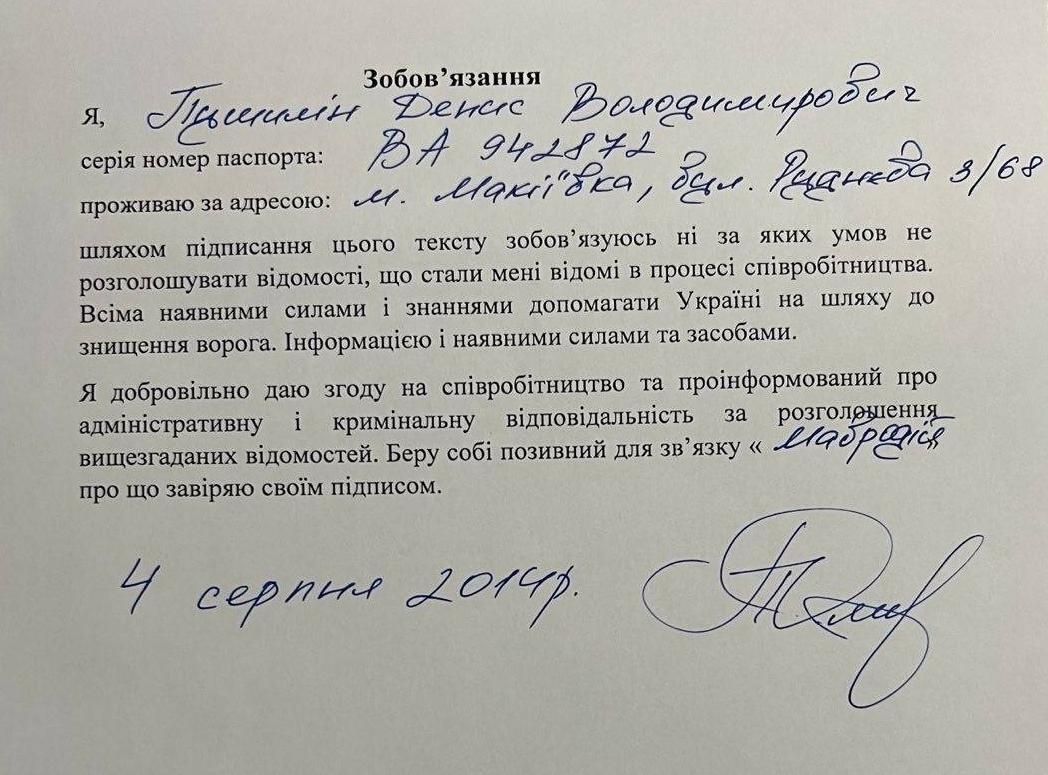 Зобов’язання
Я, Пушилін Денис Володимирович
серія номер паспорта: ВА 942872
проживаю за адресою: м. Макіївка, бул. 3/68
шляхом підписання цього тексту зобов’язуюсь ні за яких умов не
розголошувати відомості, що стали мені відомі в процесі співробітництва.
Всіма наявними силами і знаннями допомагати Україні на шляху до
знищення ворога. Інформацією і наявними силами та засобами.
Я добровільно даю згоду на співробітництво та проінформований про
адміністративну і кримінальну відповідальність за розголошення
вищезгаданих відомостей. Беру собі позивний для зв’язку «
про що завіряю своїм підписом.
4 серпня 2014р.